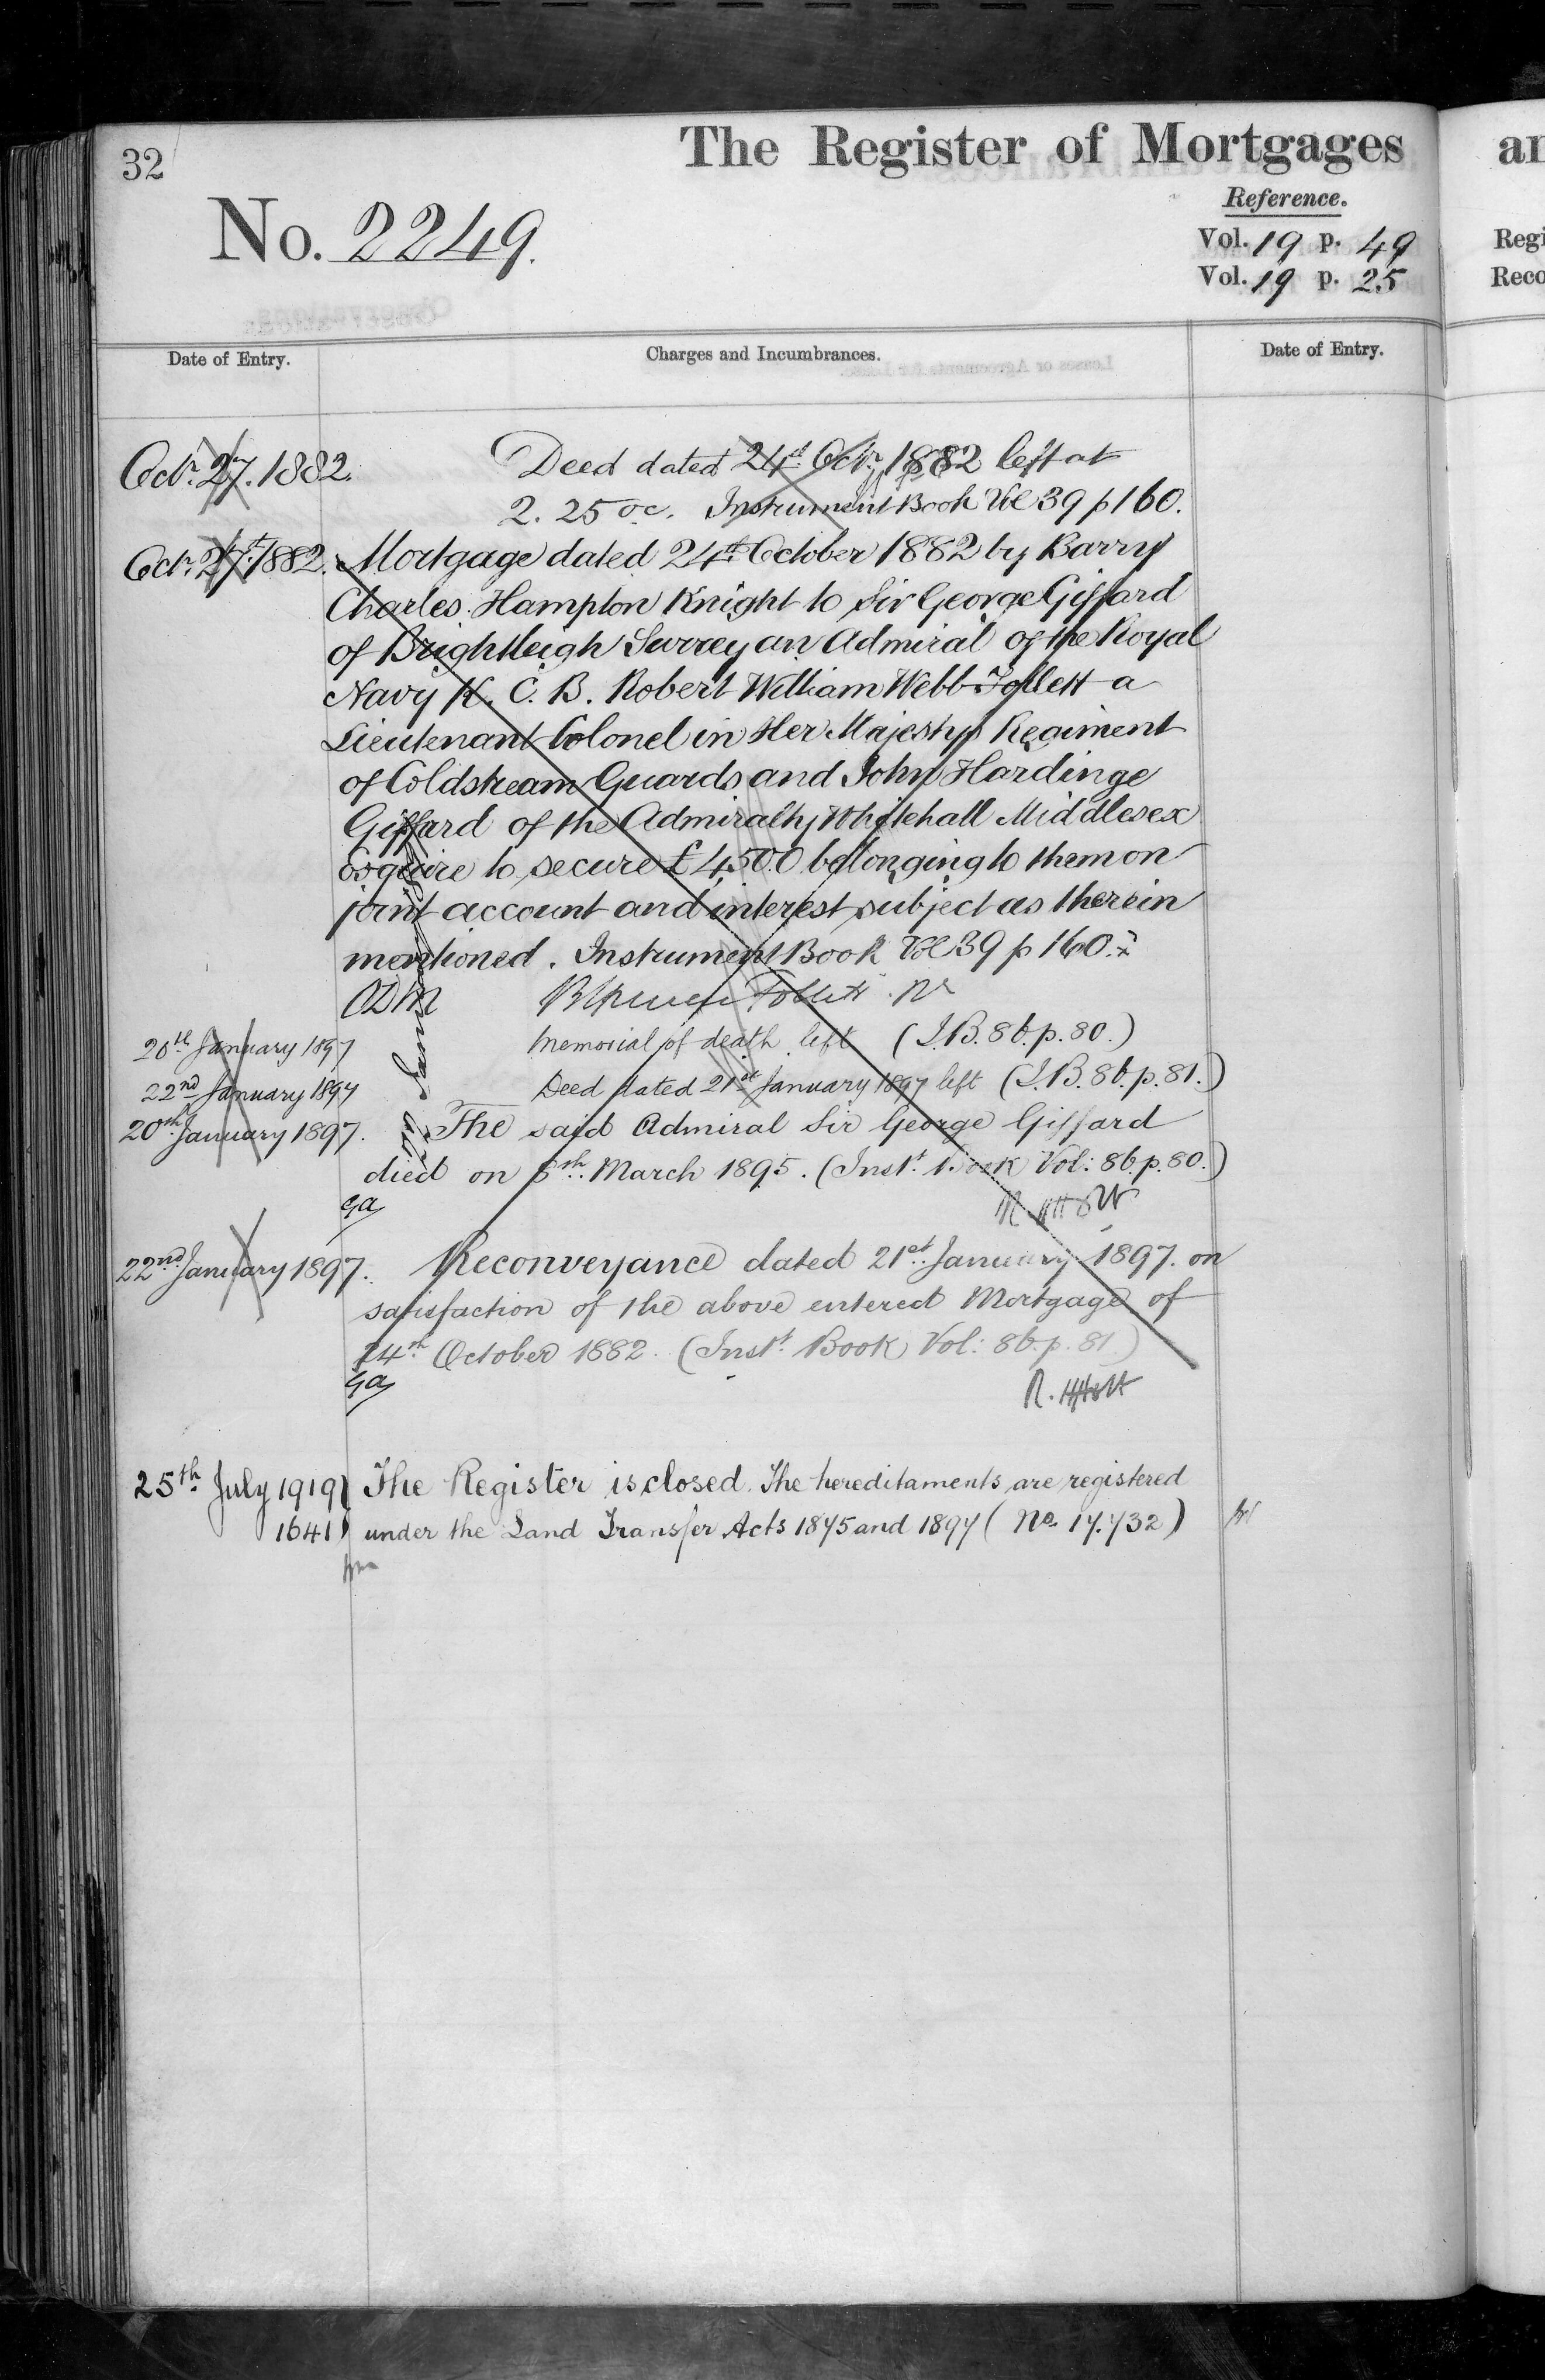 32
The Register of Mortgages
an
No. 2249.
Reference.
Vol. 19 p. 49
Vol. 19 p. 25
Regi
Reco
Date of Entry.
Charges and Incumbrances.
Date of Entry.
Octr. 27. 1882. Deed dated 24th Octr. 1882 left at
2. 25 oc. Instrument Book Vol 39 p 160.
Octr. 27th 1882. Mortgage dated 24th October 1882 by Barry
Charles Hampton Knight to Sir George Giffard
of Brightleigh Surrey an Admiral of the Royal
Navy K. C. B. Robert William Webb Follett a
Lieutenant Colonel in Her Majestys Regiment
of Coldstream Guards and John Hardinge
Giffard of the Admiralty Whitehall Middlesex
Esquire to secure £4500 belonging to them on
joint account and interest subject as therein
mentioned. Instrument Book Vol 39 p 160.
Follett
20th January 1897 Memorial of death left (I.B. 86. p. 80.)
22nd January 1897 Deed dated 21st January 1897 left (I.B. 86. p. 81.)
20th January 1897. The said Admiral Sir George Giffard
died on 8th March 1895. (Instt. Book Vol: 86. p. 80.)
GA
R. Holt
22nd January 1897. Reconveyance dated 21st January 1897. on
satisfaction of the above entered Mortgage of
24th October 1882. (Instt. Book Vol: 86. p. 81.)
GA
R. Holt
25th July 1919 } The Register is closed. The hereditaments are registered
1641 } under the Land Transfer Acts 1875 and 1897 (No. 17.732)